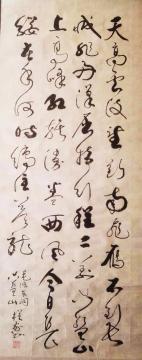 天高云淡望断南飞雁不到长
城非好汉屈指行程二万六盘山
上高峰红旗漫卷西风今日长
缨在手何时缚住苍龙
毛泽东词
六盘山